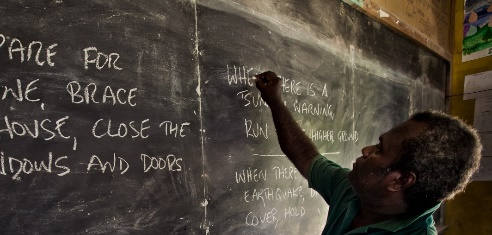 FOR
BRACE
HOUSE, CLOSE THE
AND DOORS
THERE IS A
WARNING,
RUN HIGHER GROUND
WHEN THERE
EARTHQUAKE,
COVER, HOLD